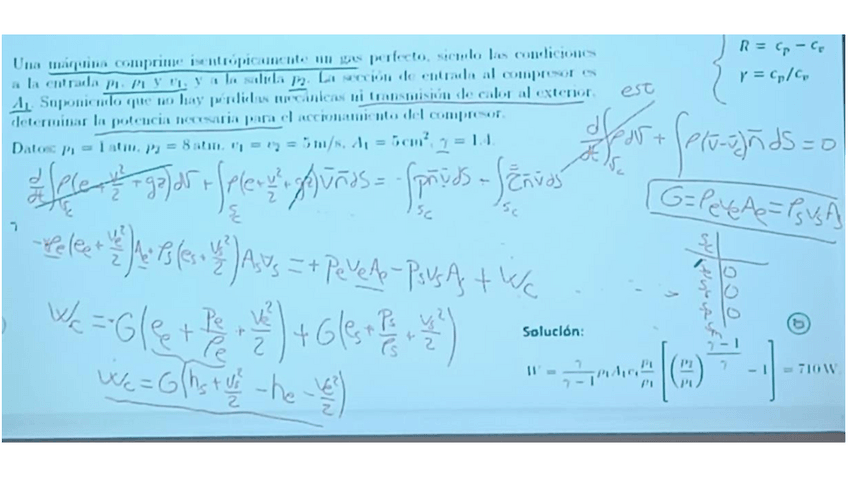 Una máquina comprime isentrópicamente un gas perfecto, siendo las condiciones
a la entrada p₁, ρ₁ y v₁, y a la salida p₂. La sección de entrada al compresor es
A₁. Suponiendo que no hay pérdidas mecánicas ni transmisión de calor al exterior,
determinar la potencia necesaria para el accionamiento del compresor.
Datos: p₁ = 1 atm, p₂ = 8 atm, v₁ = v₂ = 5 m/s, A₁ = 5 cm², γ = 1.4.
R = cₚ − cᵥ
γ = cₚ/cᵥ
est
d/dt ∫ ρ dV + ∫ ρ(v̄−v̄c)n̄ dS = 0
G = ρₑvₑAₑ = ρₛvₛAₛ
d/dt ∫ ρ(e + v²/2 + gz)dV + ∫ ρ(e + v²/2 + gz)v̄n̄dS = −∫ pn̄v̄dS −
−ρₑ(eₑ + vₑ²/2)Aₑ + ρₛ(eₛ + vₛ²/2)Aₛvₛ = + pₑvₑAₑ − pₛvₛAₛ + Wc
Wc = −G(eₑ + pₑ/ρₑ + vₑ²/2) + G(eₛ + pₛ/ρₛ + vₛ²/2)
Wc = G(hₛ + vₛ²/2 − hₑ − vₑ²/2)
Sc
0
0
0
6
Solución:
W = γ/(γ−1) ρ₁A₁v₁ p₁/ρ₁ [(p₂/p₁)^((γ−1)/γ) − 1] = 710 W.